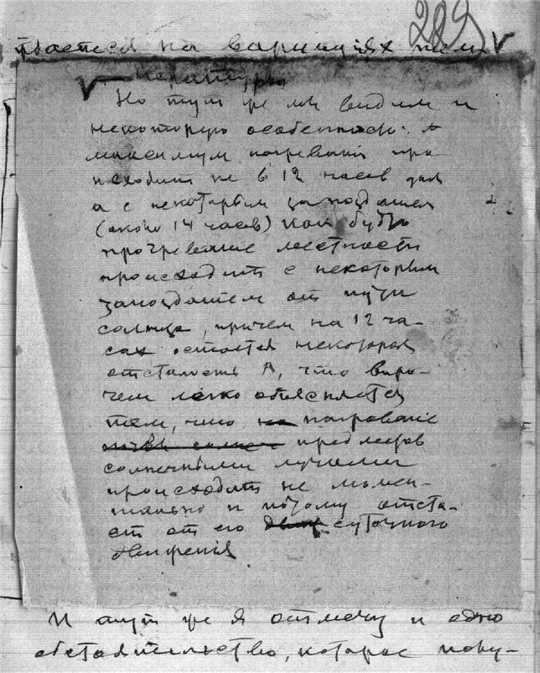 209
на вариациях
Но тут же мы видим и
некоторую особенность. А
максимум нагревания про
исходит не в 12 часов дня
а с некоторым запозданием
(около 14 часов) как будто
прогревание местности
происходит с некоторым
запозданием от пути
солнца, причем на 12 ча-
сах остается некоторая
что впро-
чем легко объясняется
тем, что на нагревание
предметов
солнечными лучами
происходит не момен-
тально и потому отста-
ет от его суточного
движения
И тут же я отмечу и одно
обстоятельство, которое